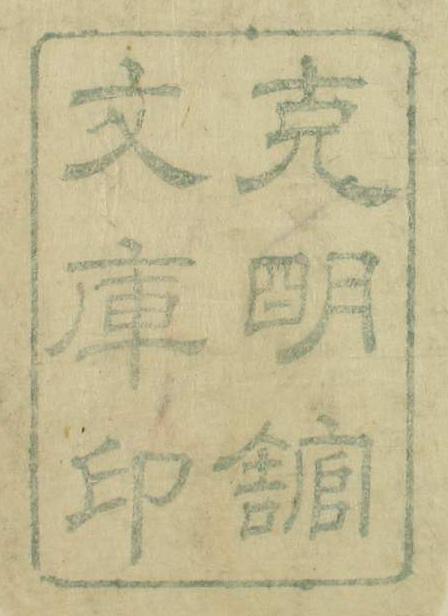 克明舘
文庫印